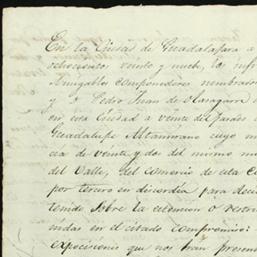 En la Ciudad de Guadalajara a
ochocientos veinte y nueve, los infr
Amigables componedores nombraron
y D. Pedro Juan de Olasagarre
en esta Ciudad a veinte de
Guadalupe Altamirano cuyo
cia de veinte y dos del mismo m
del Valle, del comercio de esta C
por tercero en discordia para deci
tenido sobre la
indas en el citado compromiso:
expecicionis que nos han presen